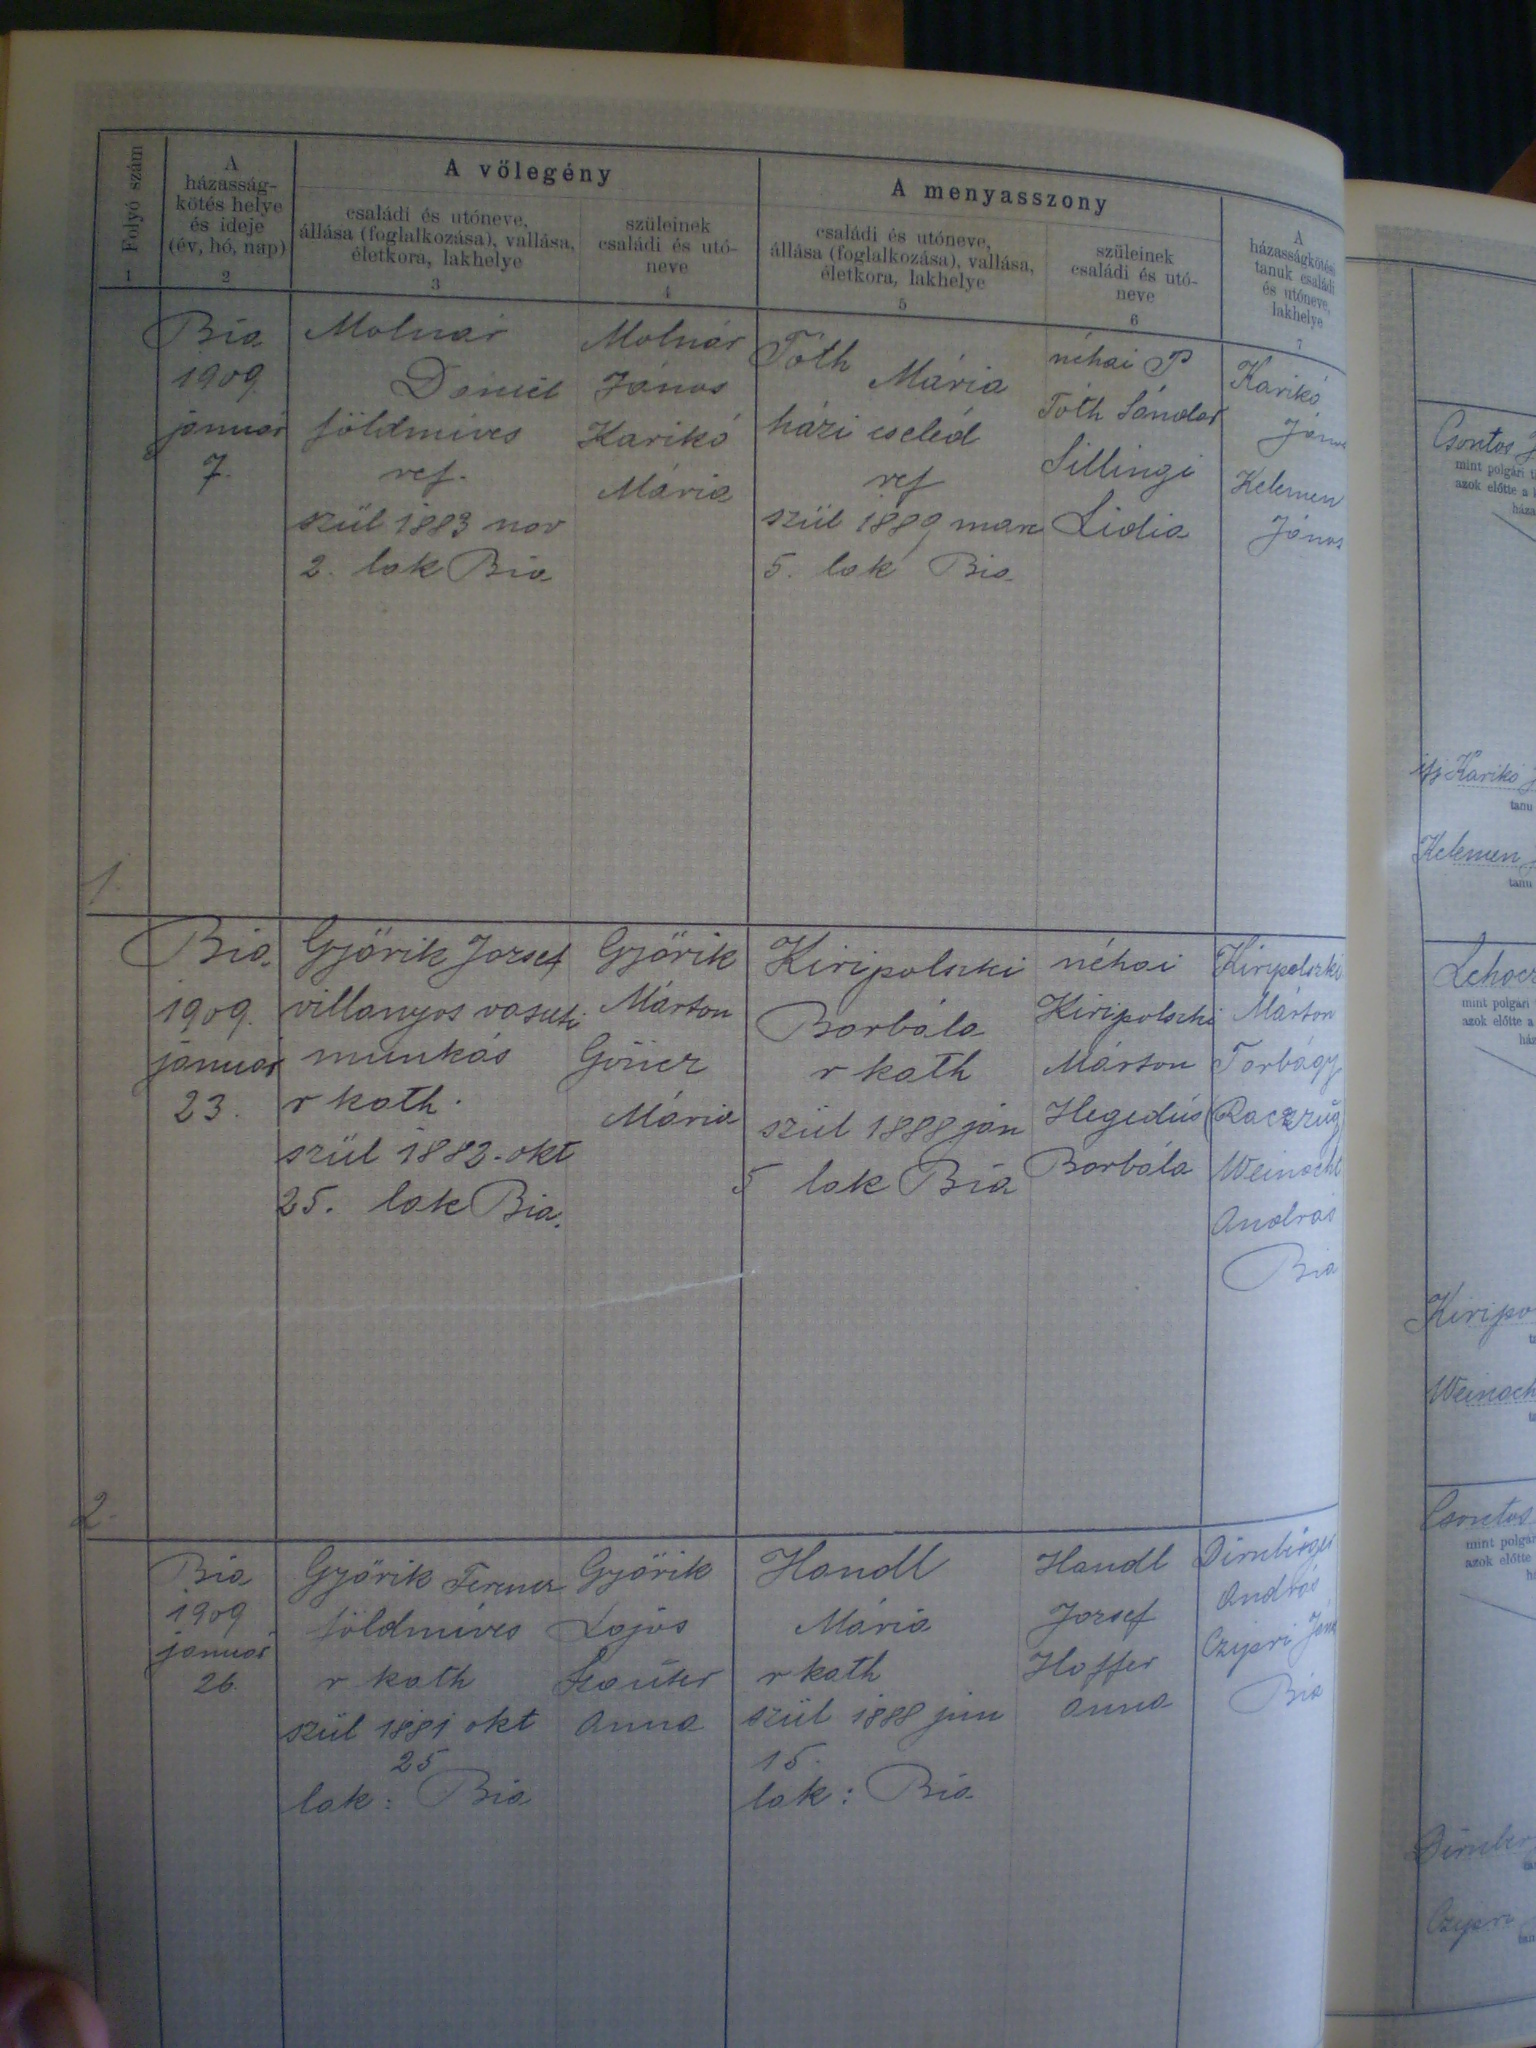 Folyó szám
1
A
házasság-
kötés helye
és ideje
(év, hó, nap)
2
A völegény
családi és utóneve,
állása (foglalkozása), vallása,
életkora, lakhelye
3
szüleinek
családi és utó-
neve
4
A menyasszony
családi és utóneve,
állása (foglalkozása), vallása,
életkora, lakhelye
5
szüleinek
családi és utó-
neve
6
A
házasságkötési
tanuk családi
és utóneve,
lakhelye
7
1.
Bia
1909.
január
7.
Molnár
Dániel
földmíves
ref.
szül 1883 nov
2. lak Bia
Molnár
János
Karikó
Mária
Tóth
Mária
házi cseléd
ref
szül 1889 marc
5. lak Bia
néhai P
Tóth Sándor
Sillingi
Lidia
Karikó
János
Kelemen
János
2.
Bia
1909.
január
23.
Györik Jozsef
villanyos vasuti
munkás
r kath.
szül 1882. okt
25. lak Bia.
Györik
Márton
Mária
Kiripolszki
Borbála
r kath
szül 1888 ján
5 lak Bia
néhai
Kiripolszki
Márton
Hegedüs
Borbála
Kiripolszki
Márton
Torbágy
Weinacht
András
Bia
Bia
1909
január
26.
Györik Ferencz
földmíves
r kath
szül 1881 okt
25
lak: Bia
Györik
Lajos
Anna
Handl
Mária
r kath
szül 1888 jun
15.
lak: Bia
Handl
Jozsef
Hoffer
Anna
Dirnberger
András
Czipri János
Bia
Csontos
mint polgári
azok előtte a
ifj Karikó
tanu
Kelemen
tanu
mint polgári
azok előtte a
Kiripo
Weinach
Csontos
mint polgár
azok előtte
Dirnber
Czipri